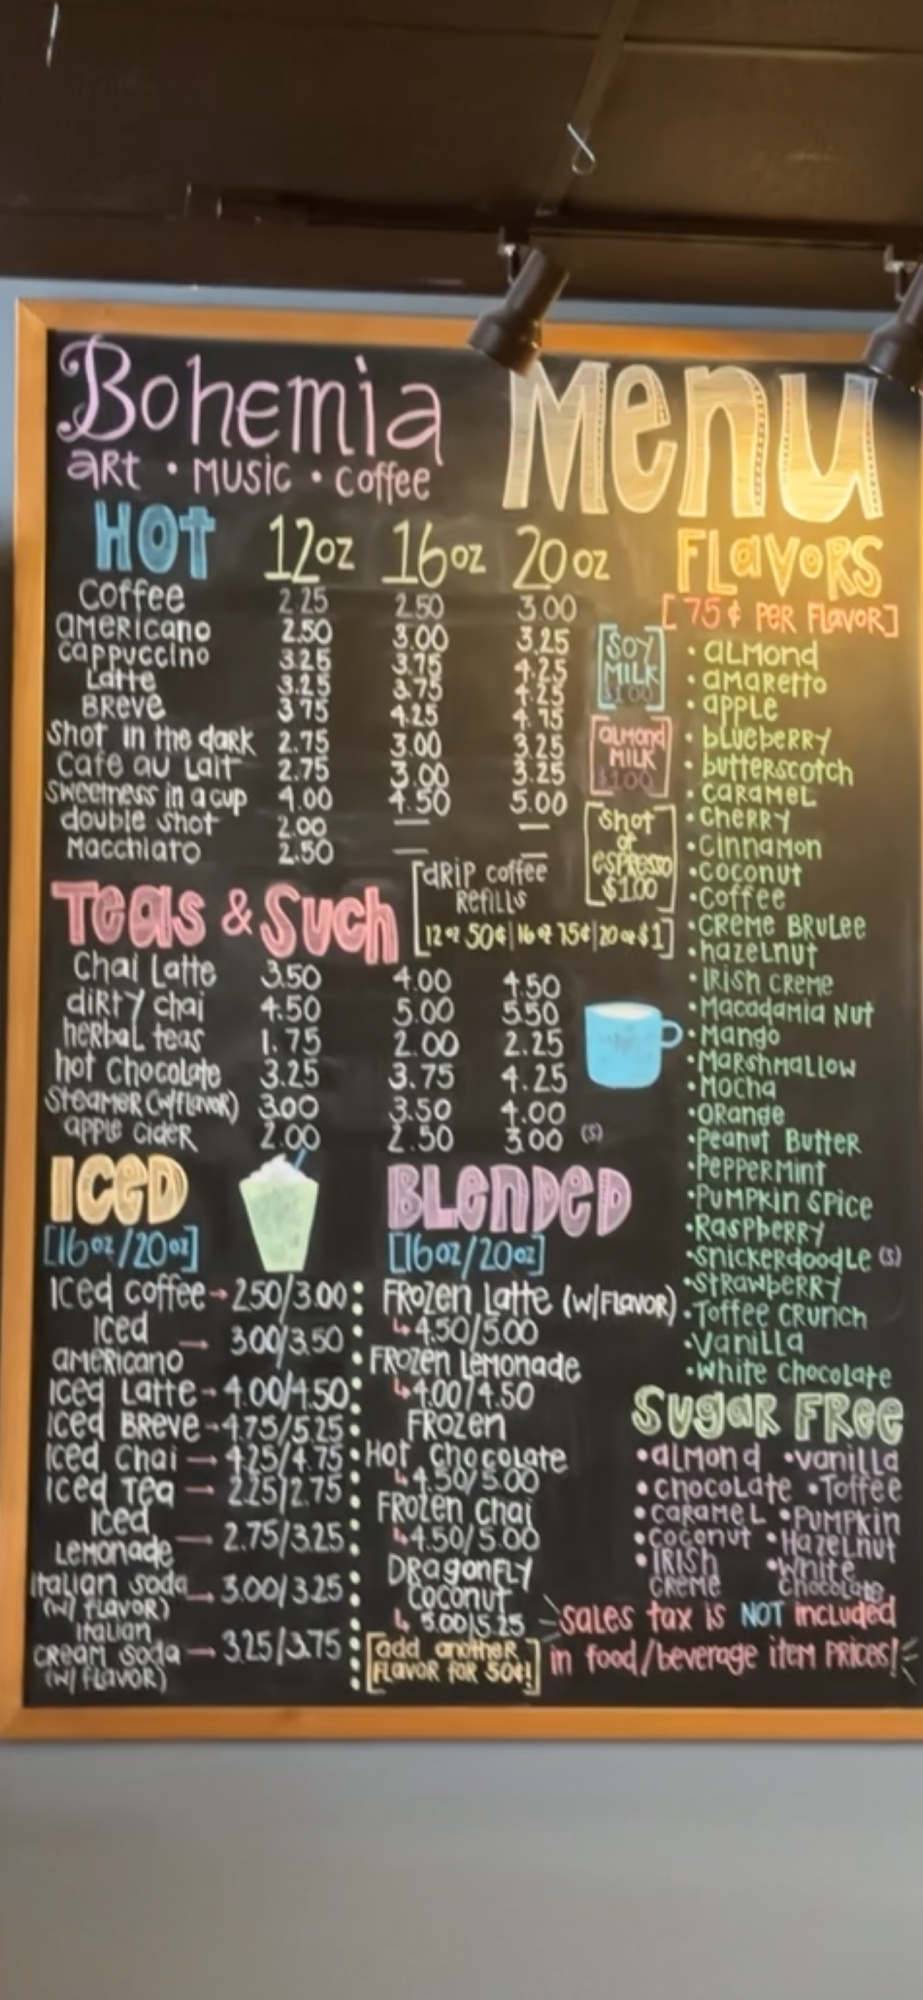 Bohemia Menu
art • music • coffee
HOT 12oz 16oz 20oz
Coffee 2.25 2.50 3.00
americano 2.50 3.00 3.25
cappuccino 3.25 3.75 4.25
Latte 3.25 3.75 4.25
Breve 3.75 4.25 4.75
shot in the dark 2.75 3.00 3.25
cafe au Lait 2.75 3.00 3.25
sweetness in a cup 4.00 4.50 5.00
double shot 2.00 — —
Macchiato 2.50 — —
[SOY
MILK
$1.00]
[almond
MILK
$1.00]
[shot
of
espresso
$1.00]
[drip coffee
Refills
12oz 50¢|16oz 75¢|20oz $1]
Teas & Such
Chai Latte 3.50 4.00 4.50
dirty chai 4.50 5.00 5.50
herbal teas 1.75 2.00 2.25
hot Chocolate 3.25 3.75 4.25
Steamer (w/flavor) 3.00 3.50 4.00
apple cider 2.00 2.50 3.00 (s)
ICED
[16oz/20oz]
Iced coffee → 2.50/3.00
Iced
americano → 3.00/3.50
Iced Latte → 4.00/4.50
Iced Breve → 4.75/5.25
Iced Chai → 4.25/4.75
Iced Tea → 2.25/2.75
Iced
Lemonade → 2.75/3.25
Italian soda
(w/ flavor) → 3.00/3.25
Italian
cream soda → 3.25/3.75
(w/ flavor)
BLENDED
[16oz/20oz]
Frozen Latte (w/flavor)
↳ 4.50/5.00
Frozen Lemonade
↳ 4.00/4.50
Frozen
Hot Chocolate
↳ 4.50/5.00
Frozen Chai
↳ 4.50/5.00
Dragonfly
Coconut
↳ 5.00/5.25
[add another
flavor for 50¢!]
FLavoRS
[75¢ per flavor]
• almond
• amaretto
• apple
• blueberry
• butterscotch
• caramel
• cherry
• Cinnamon
• coconut
• coffee
• creme brulee
• hazelnut
• Irish creme
• Macadamia Nut
• Mango
• Marshmallow
• Mocha
• Orange
• Peanut Butter
• Peppermint
• Pumpkin spice
• Raspberry
• snickerdoodle (s)
• strawberry
• Toffee crunch
• Vanilla
• White Chocolate
Sugar Free
• almond • vanilla
• chocolate • Toffee
• caramel • Pumpkin
• coconut • Hazelnut
• Irish • White
creme chocolate
sales tax is NOT included
in food/beverage item prices!